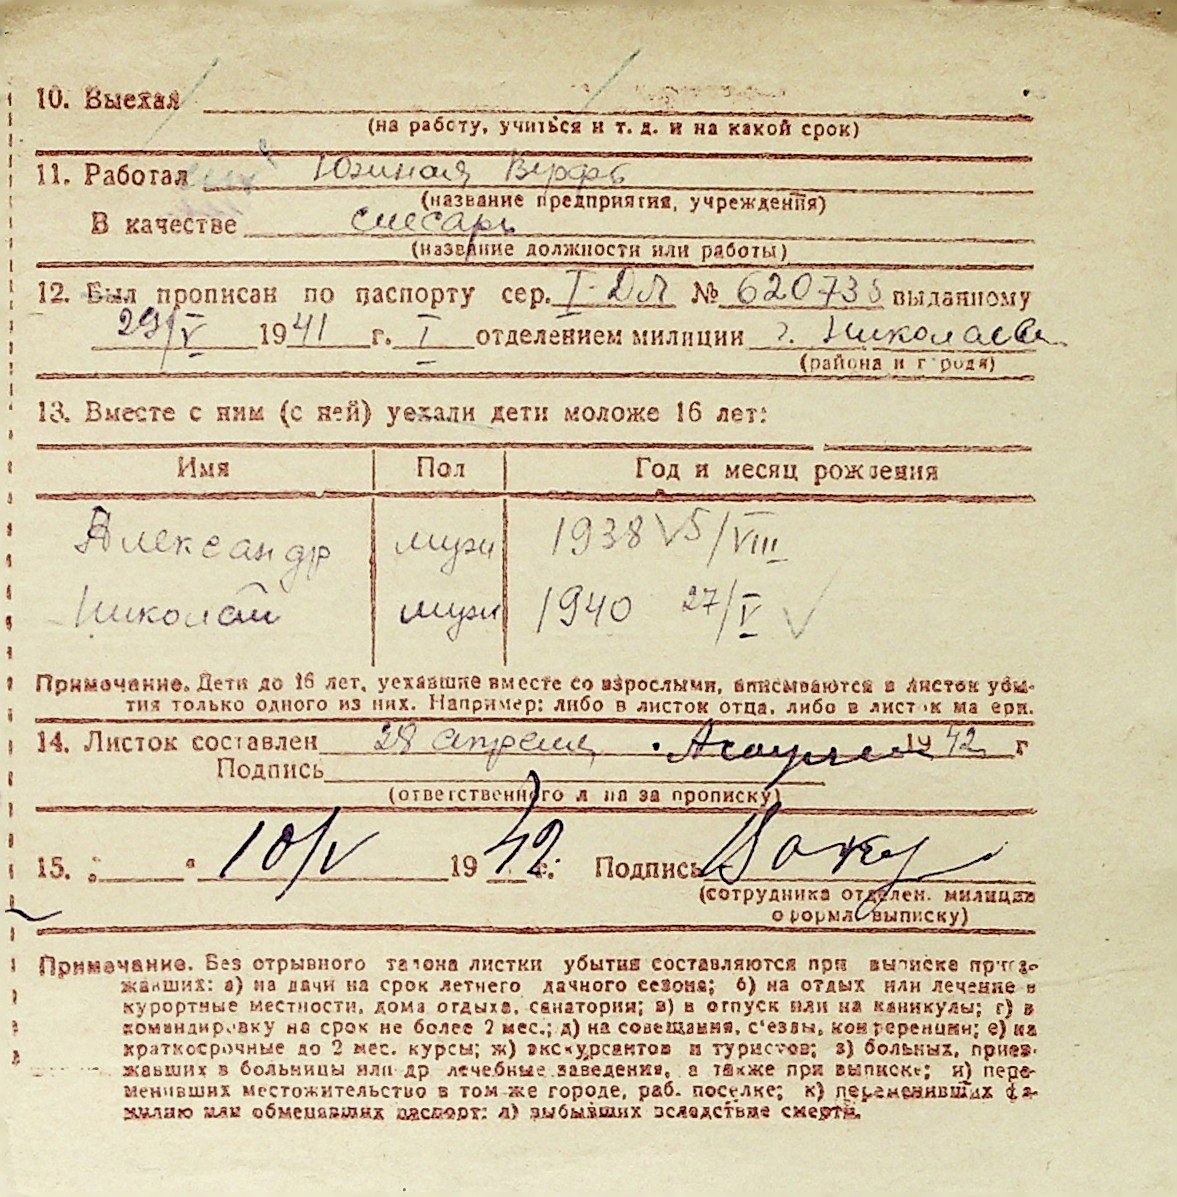 10. Выехал
(на работу, учиться и т. д. и на какой срок)
11. Работал Южная Верфь
(название предприятия, учреждения)
В качестве слесарь
(название должности или работы)
12. Был прописан по паспорту сер. I-ДЛ № 620735 выданному
29/V 1941 г. I отделением милиции г. Николаева
(района и города)
13. Вместе с ним (с ней) уехали дети моложе 16 лет:
Имя Пол Год и месяц рождения
Александр мужч 1938 5/VIII
Николай мужч 1940 27/V
Примечание. Дети до 16 лет, уехавшие вместе со взрослыми, вписываются в листок убы-
тия только одного из них. Например: либо в листок отца, либо в листок матери.
14. Листок составлен 28 апреля 1942 г
Подпись
(ответственного лица за прописку)
15. „ “ 10/V 1942 г. Подпись
(сотрудника отделен. милиции
оформл. выписку)
Примечание. Без отрывного талона листки убытия составляются при выписке приез-
жавших: а) на дачи на срок летнего дачного сезона; б) на отдых или лечение в
курортные местности, дома отдыха, санатории; в) в отпуск или на каникулы; г) в
командировку на срок не более 2 мес.; д) на совещания, с'езды, конференции; е) на
краткосрочные до 2 мес. курсы; ж) экскурсантов и туристов; з) больных, приез-
жавших в больницы или др лечебные заведения, а также при выписке; и) пере-
менивших местожительство в том же городе, раб. поселке; к) переменивших фа-
милию или обменявших паспорт; л) выбывших вследствие смерти.